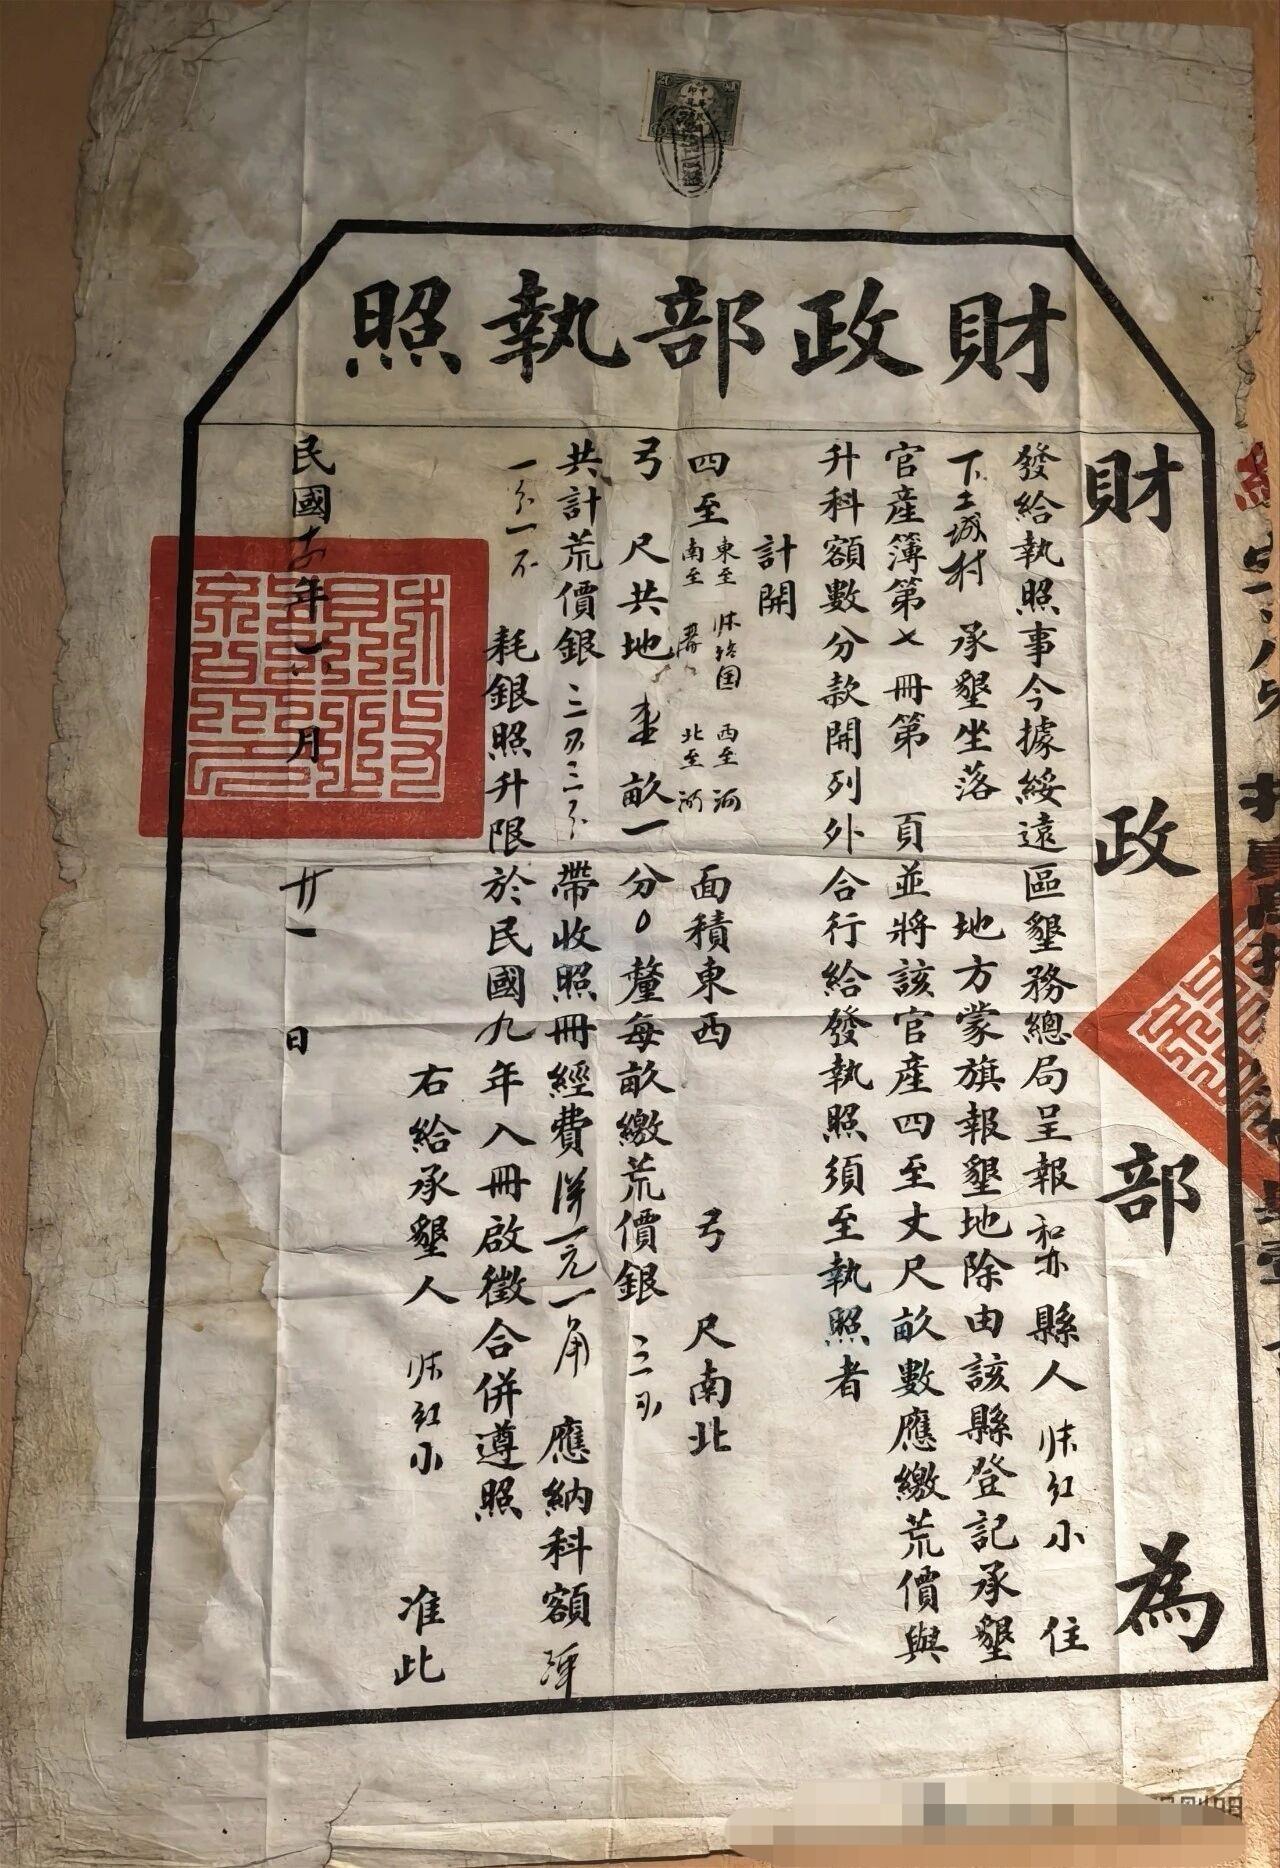 財政部執照
財政部為
發給執照事今據綏遠區墾務總局呈報和亦縣人 紅小 住
下土城村 承墾坐落 地方蒙旗報墾地除由該縣登記承墾
官產簿第七冊第 頁並將該官產四至丈尺畝數應繳荒價與
升科額數分款開列外合行給發執照須至執照者
計開
四至 東至 南至 西至河 北至河 面積東西 弓 尺南北
弓 尺共地 畝一分0釐每畝繳荒價銀三
共計荒價銀三 三 帶收照冊經費洋一元一角 應納科額洋
一分一 耗銀照升限於民國九年入冊啟徵合併遵照
右給承墾人 紅小 准此
民國 年 月 廿一日